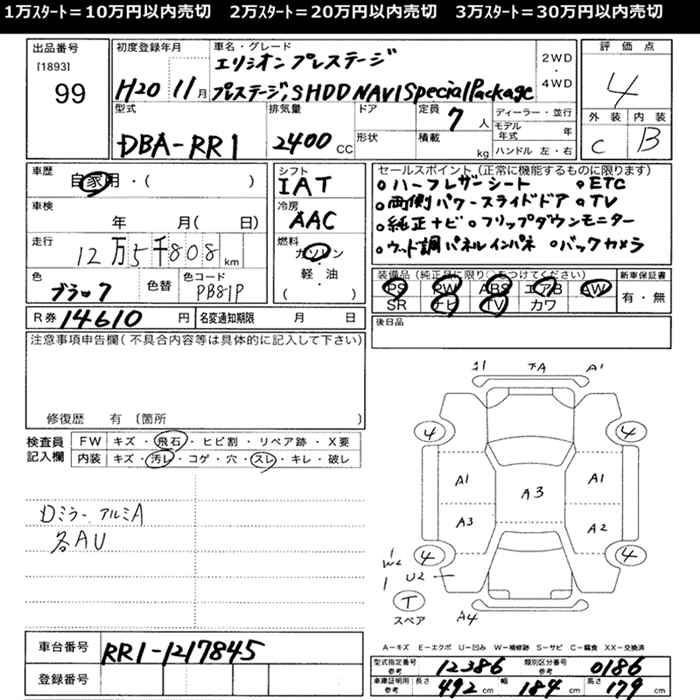 1万ｽﾀｰﾄ＝10万円以内売切　2万ｽﾀｰﾄ＝20万円以内売切　3万ｽﾀｰﾄ＝30万円以内売切
出品番号
[1893]
99
初度登録年月
H20 11月
車名・グレード
エリシオン プレステージ
プレステージ,S HDD NAVI Special Package
2WD
・
4WD
評価点
4
外装 内装
C B
型式
DBA-RR1
排気量
2400 CC
ドア
形状
定員 7 人
積載 kg
ディーラー・並行
モデル年式 年
ハンドル 左・右
車歴
自家用・( )
車検
年 月( 日)
走行
12万5千808 km
色
ブラック
色替
色コード
PB81P
シフト
IAT
冷房
AAC
燃料
ガソリン
・
軽・油
( )
セールスポイント(正常に機能するものに限ります)
○ハーフレザーシート ○ETC
○両側パワースライドドア ○TV
○純正ナビ ○フリップダウンモニター
○ウッド調パネルインパネ ○バックカメラ
装備品(純正品に限り○をつけてください)
PS PW ABS エアB AW
SR ナビ TV カワ
新車保証書
有・無
R券 14610 円
名変通知期限 月 日
後日品
注意事項申告欄(不具合内容等は具体的に記入して下さい)
修復歴 有 (箇所 )
検査員
記入欄
FW キズ・飛石・ヒビ割・リペア跡・X要
内装 キズ・汚レ・コゲ・穴・スレ・キレ・破レ
Dミラー アルミA
各AU
A1
4 4
A1 A3 A1
A3 A2
4 4
W2
U2
T
スペア
A4
A-キズ E-エクボ U-凹み W-補修跡 S-サビ C-腐食 XX-交換済
車台番号
RR1-1217845
登録番号
型式指定番号
参考
12386
類別区分番号
参考
0186
車庫証明用
参考
長さ 492 cm
幅 184 cm
高さ 179 cm